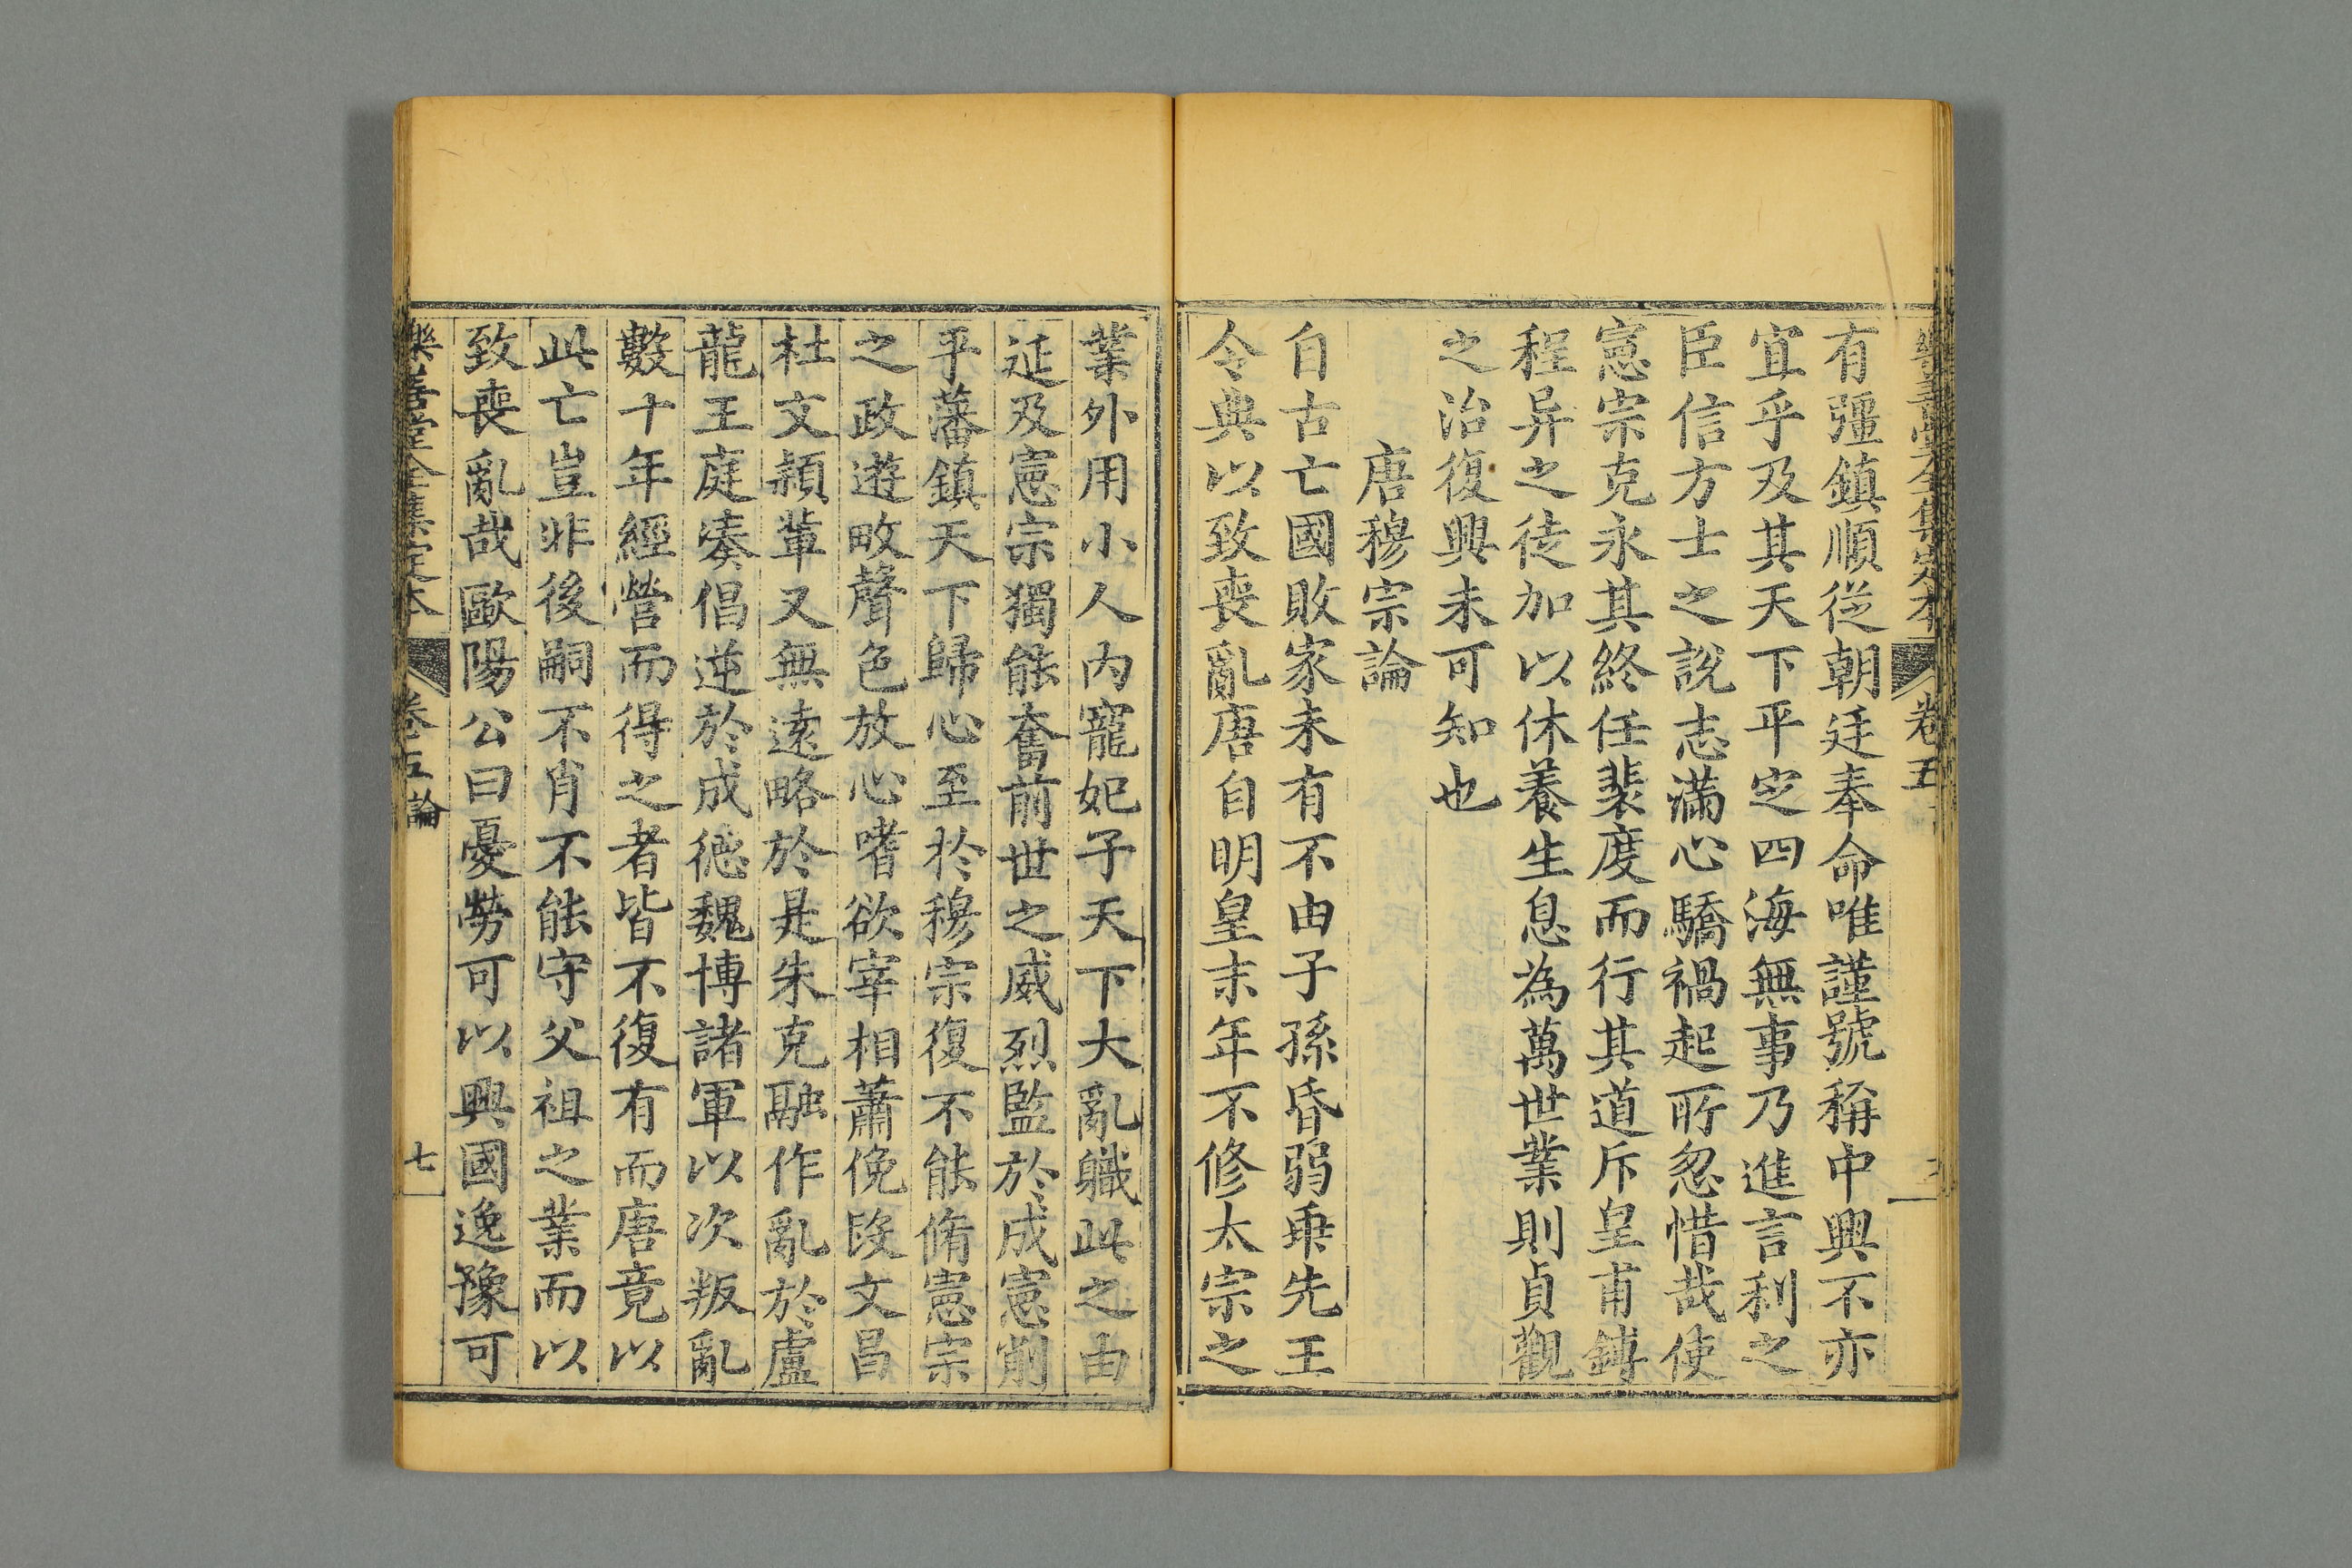 樂善堂全集定本 卷五
有彊鎮順從朝廷奉命唯謹號稱中興不亦
宜乎及其天下平定四海無事乃進言利之
臣信方士之說志滿心驕禍起所忽惜哉使
憲宗克永其終任裴度而行其道斥皇甫鎛
程异之徒加以休養生息為萬世業則貞觀
之治復興未可知也
唐穆宗論
自古亡國敗家未有不由子孫昏弱乖先王
令典以致喪亂唐自明皇末年不修太宗之
業外用小人內寵妃子天下大亂職此之由
延及憲宗獨能奮前世之威烈監於成憲削
平藩鎮天下歸心至於穆宗復不能脩憲宗
之政遊畋聲色放心嗜欲宰相蕭俛段文昌
杜文穎輩又無遠略於是朱克融作亂於盧
龍王庭湊倡逆於成德魏博諸軍以次叛亂
數十年經營而得之者皆不復有而唐竟以
此亡豈非後嗣不肖不能守父祖之業而以
致喪亂哉歐陽公曰憂勞可以興國逸豫可
樂善堂全集定本 卷五 論 七